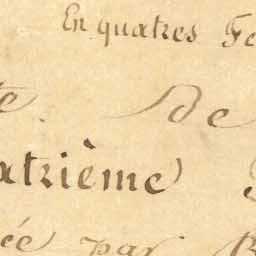 En quatres Fe
te. De
atrième
ée par R